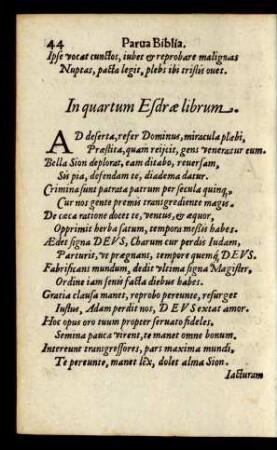 44 Parua Biblia.
Ipse vocat cunctos, iubet & reprobare malignas
Nuptas, pacta legit, plebs ibi tristis ovet.
In quartum Esdræ librum.
AD deserta, refer Dominus, miracula plæbi,
Præstita, quam reijcit, gens veneratur eum.
Bella Sion deplorat, eam ditabo, reuersam,
Sis pia, defendam te, diadema datur.
Crimina sunt patrata patrum per secula quinq́,
Cur nos gente premis transgrediente magis.
De cæca ratione docet te, ventus, & æquor,
Opprimit herba satum, tempora mestis habes.
Ædet signa DEVS, Charum cur perdis Iudam,
Parturis, vt prægnans, tempore quemq́ DEVS.
Fabricans mundum, dedit vltima signa Magister,
Ordine iam senis facta diebus habes.
Gratia clausa manet, reprobo pereunte, resurget
Iustus, Adam perdit nos, DEVS extat amor.
Hoc opus oro tuum propter seruato fideles,
Semina pauca virent, te manet omne bonum.
Intereunt transgressores, pars maxima mundi,
Te pereunte, manet lex, dolet alma Sion.
Iacturam